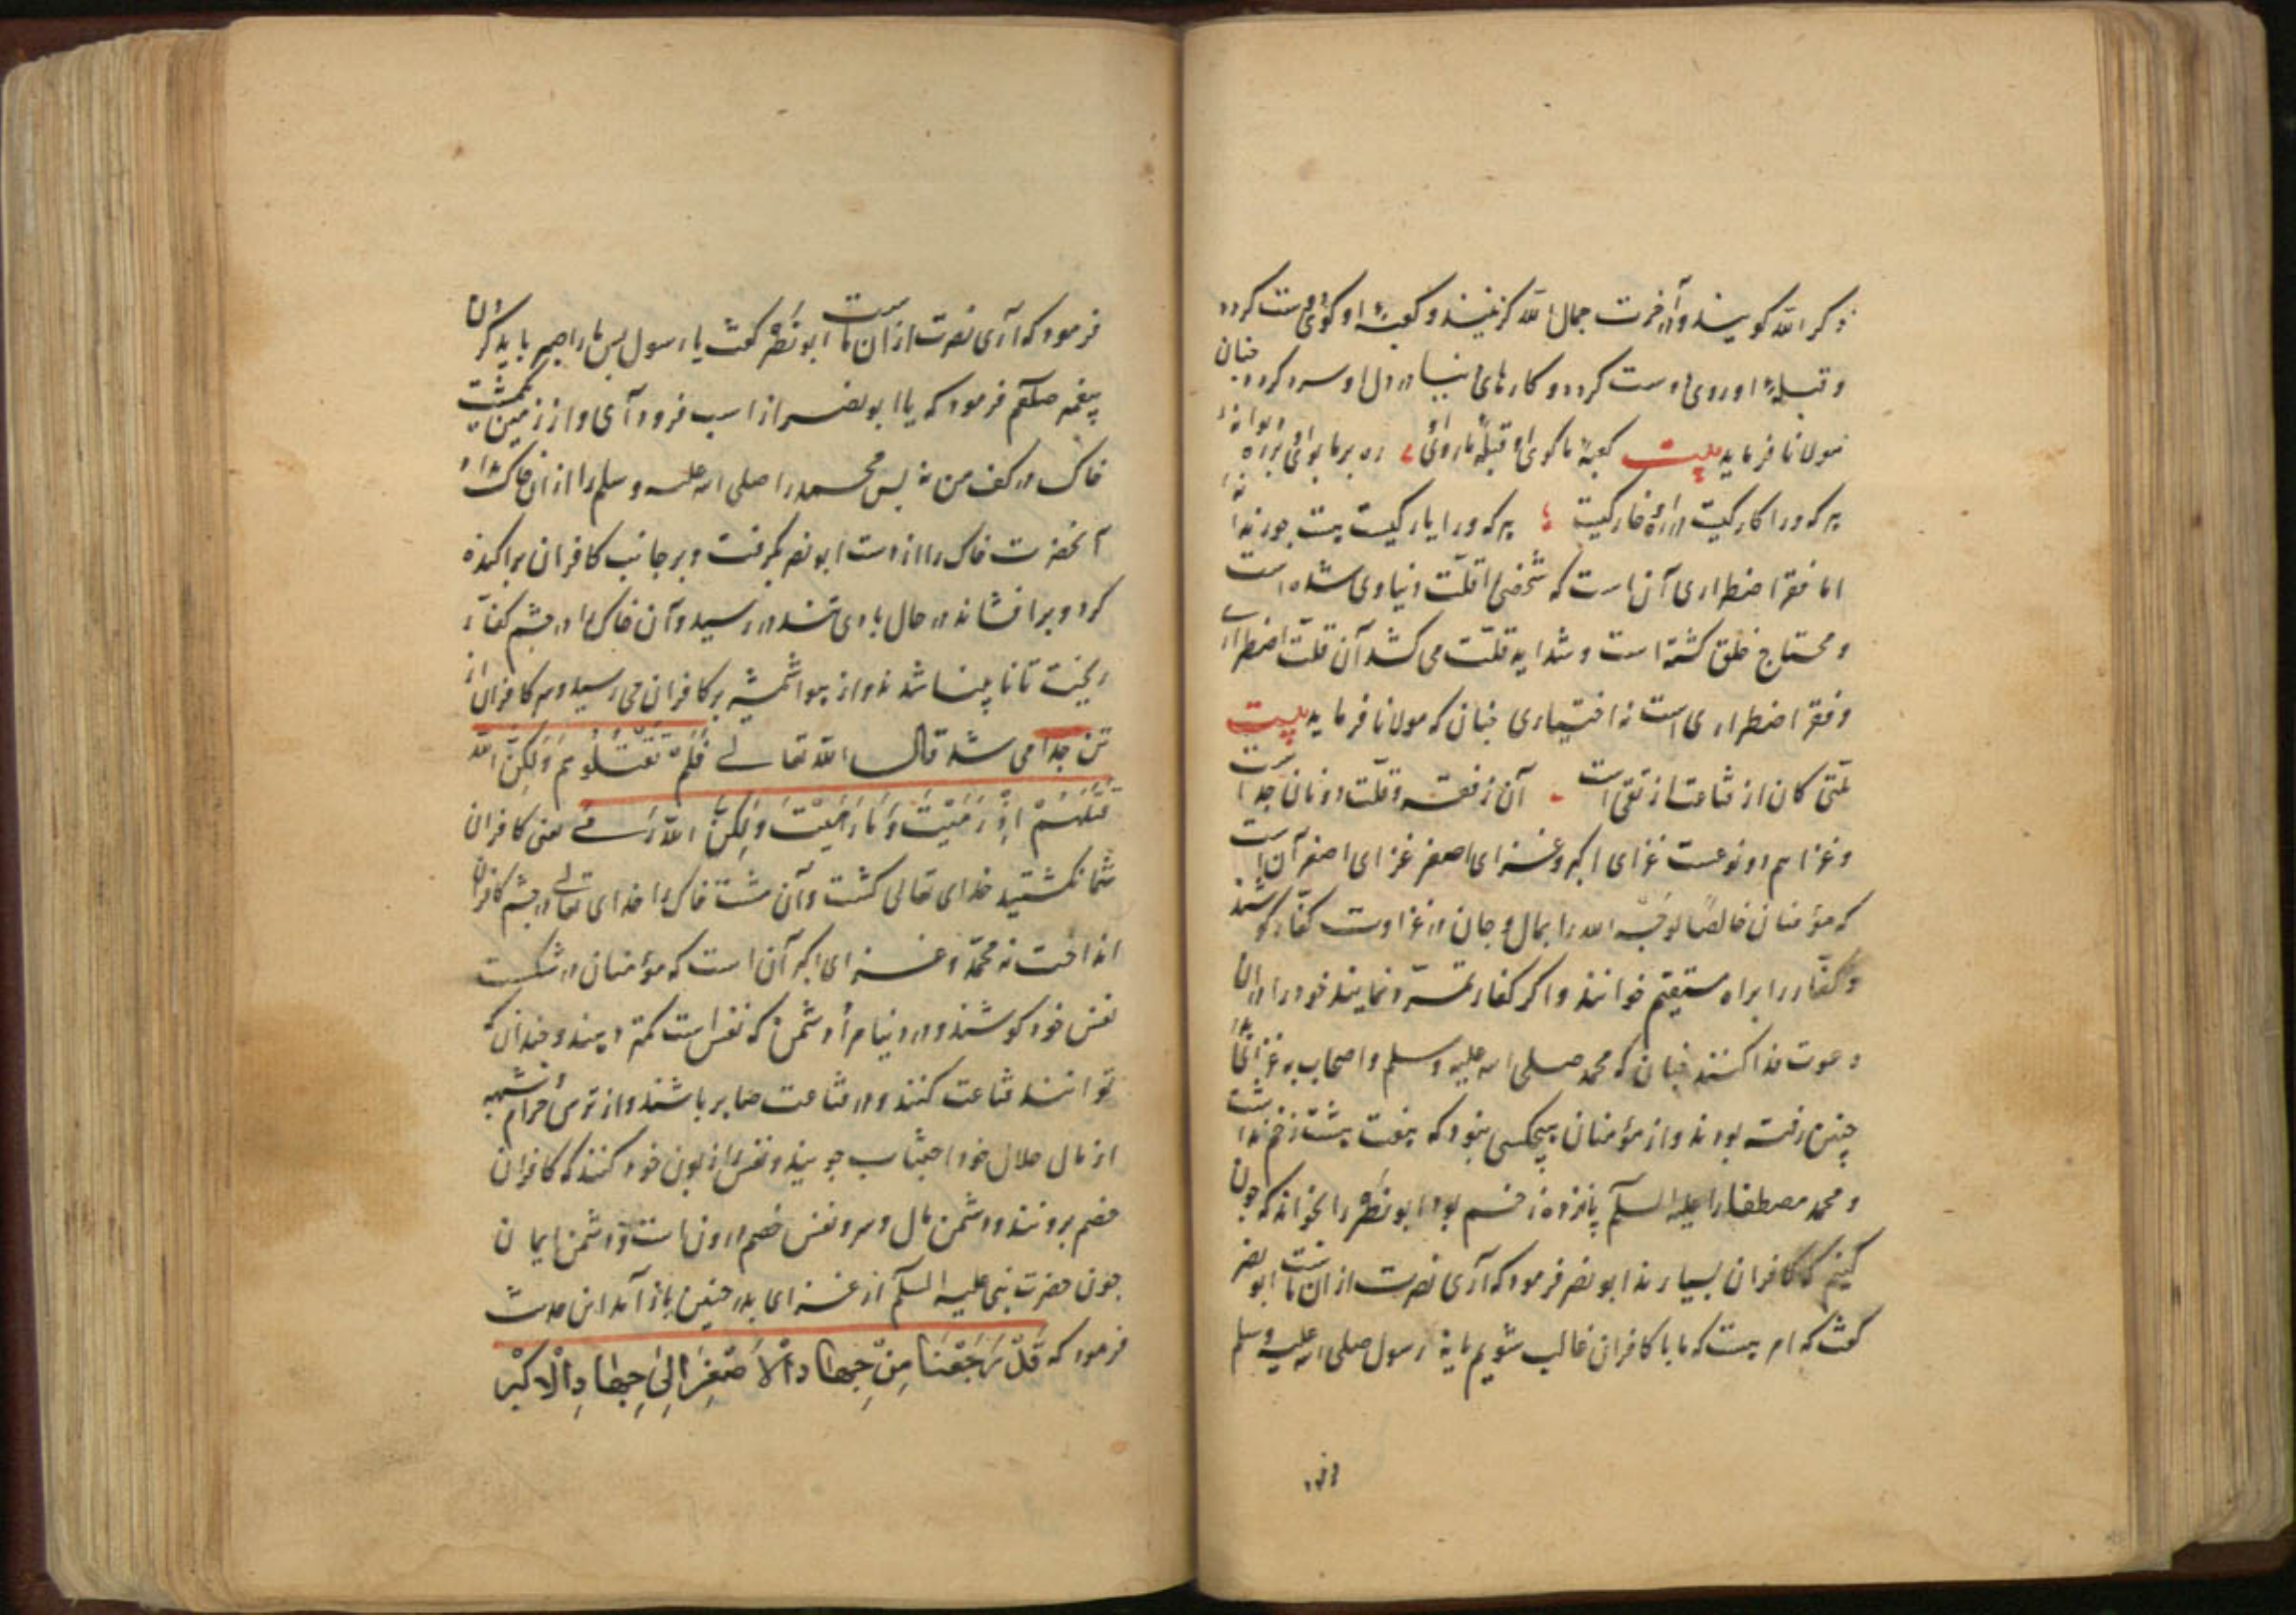 ذکر الله کویند و در آخرت جمال الله کزینند و کعبهٔ او کوی دوست کردد
و قبلهٔ او روی دوست کردد و کارهای دنیا در دل او سرد کردد چنان
مولانا فرماید بیت کعبهٔ ما کوی او قبلهٔ ما روی او
هر که ورا کار کیست در ره او خار کیست هر که ورا یار کیست
اما فقر اضطراری آن است که شخصی را قلّت دنیاوی شده است
و محتاج خلق کشته است و شداید قلّت می کشد آن قلّت اضطراری
و فقر اضطراری است نه اختیاری چنان که مولانا فرماید بیت
قلّتی کان از قناعت از تقی است آن ز فقر و قلّت دونان جداست
و غزا هم دو نوعست غزای اکبر و غزای اصغر غزای اصغر آن است
که مؤمنان خالصًا لوجه الله را بمال و جان در غزاوت کفّار کوشند
و کفّار را براه مستقیم خوانند و اکر کفار تمرّد نمایند خود را در آن
دعوت فدا کنند چنان که محمد صلی الله علیه وسلم و اصحاب به غزای بدر
حنین رفته بودند و از مؤمنان هیچکسی نبود که هفت هشت زخم نداشت
و محمد مصطفا را علیه السلم پانزده زخم بود ابو نصر را بخواند که چون
کنیم که کافران بسیارند ابو نصر فرمود که آری نصرت از آن ماست ابو نصر
کفت که امر چیست که ما با کافران غالب شویم یا نه رسول صلی الله علیه وسلم
فرمود
فرمود که آری نصرت از آن ماست ابو نصر کفت یا رسول پس ما را چه باید کردن
پیغمبر صلعم فرمود که یا ابو نصر از اسب فرود آی و از زمین یکمشت
خاک در کف من نه پس محمد را صلی الله علیه وسلم را از آن خاک داد
آنحضرت خاک را از دست ابو نصر بکرفت و بر جانب کافران پراکنده
کرد و برافشاند در حال بادی تند در رسید و آن خاک را در چشم کفّار
ریخت تا نابینا شدند و از هوا شمشیر بر کافران می رسید و سر کافران از
تن جدا می شد قال الله تعالی فَلَمْ تَقْتُلُوهُمْ وَلَکِنَّ الله
قَتَلَهُمْ اِذْ رَمَیْتَ وَمَا رَمَیْتَ وَلَکِنَّ اللهَ رَمی یعنی کافران
شما نکشتید خدای تعالی کشت و آن مشت خاک را خدای تعالی در چشم کافران
انداخت نه محمّد و غزای اکبر آن است که مؤمنان در شکست
نفس خود کوشند و در دنیا مراد دشمن که نفس است کمتر دهند و چندان که
توانند قناعت کنند و در قناعت صابر باشند و از ترس حرام و شبهه
از مال حلال خود اجتناب جویند و نفس را زبون خود کنند که کافران
خصم برونند و دشمن مال و سر و نفس خصم درون است و دشمن ایمان
چون حضرت نبی علیه السلم از غزای بدر حنین باز آمد این حدیث
فرمود که قَدْ رَجَعْنَا مِنْ جِهَادِ الْاَصْغَرِ اِلَی جِهَادِ الْاَکْبَرِ